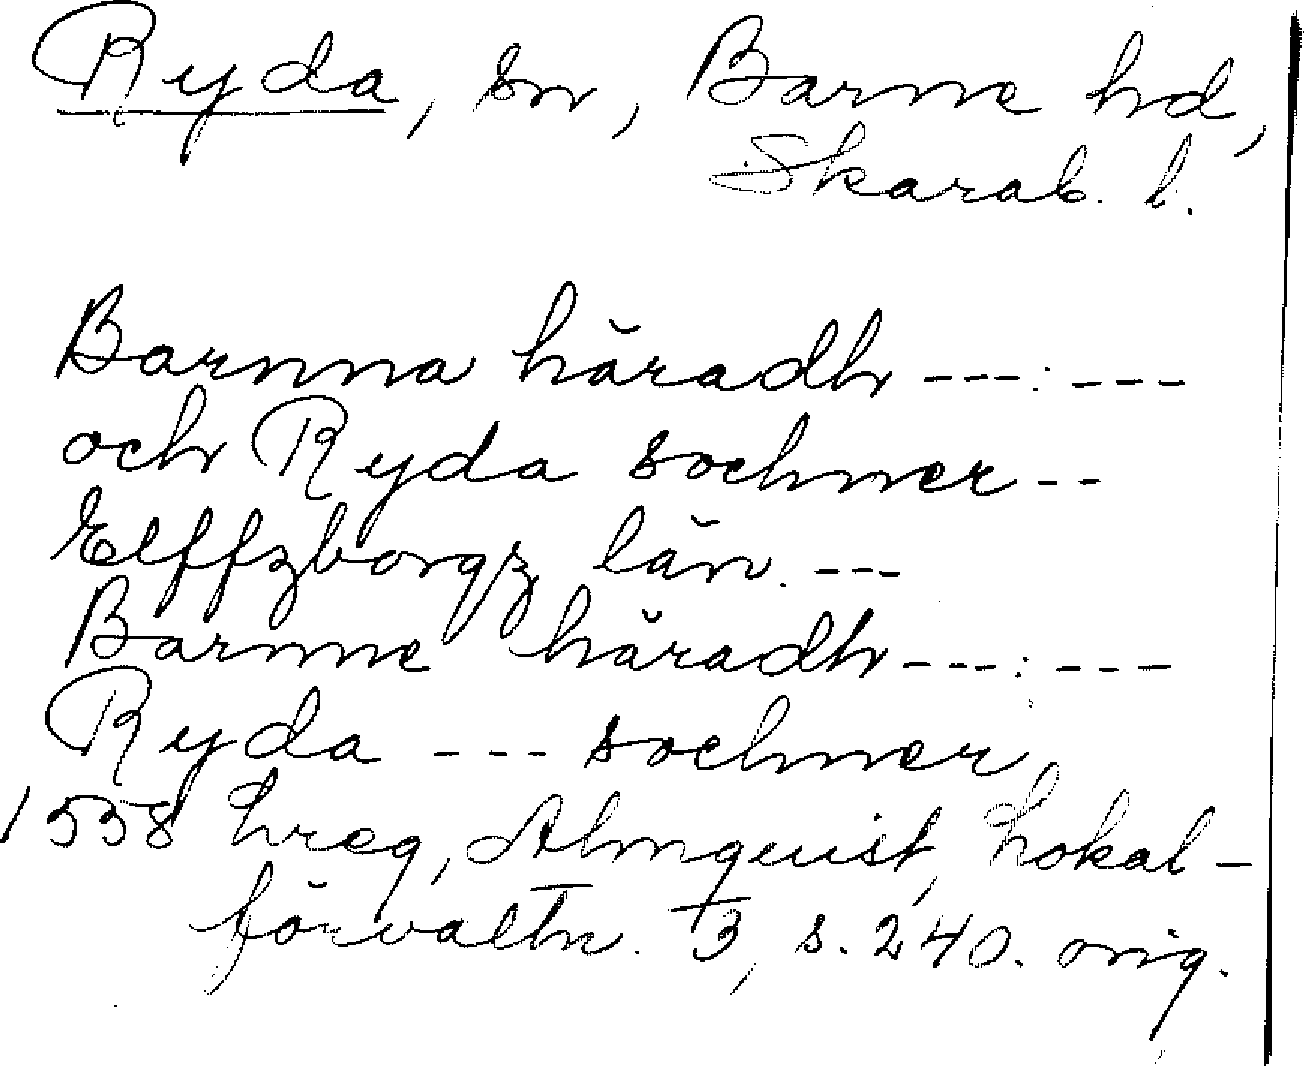 Ryda, sn, Barne hd,
Skarab. l.
Barnna häradh ---:---
och Ryda sochner --
Elffzborgz län. ---
Barnne häradh ---:---
Ryda --- sochner,
1558 hreg, Almquist, Lokal-
förvaltn. 3, s. 240. orig.